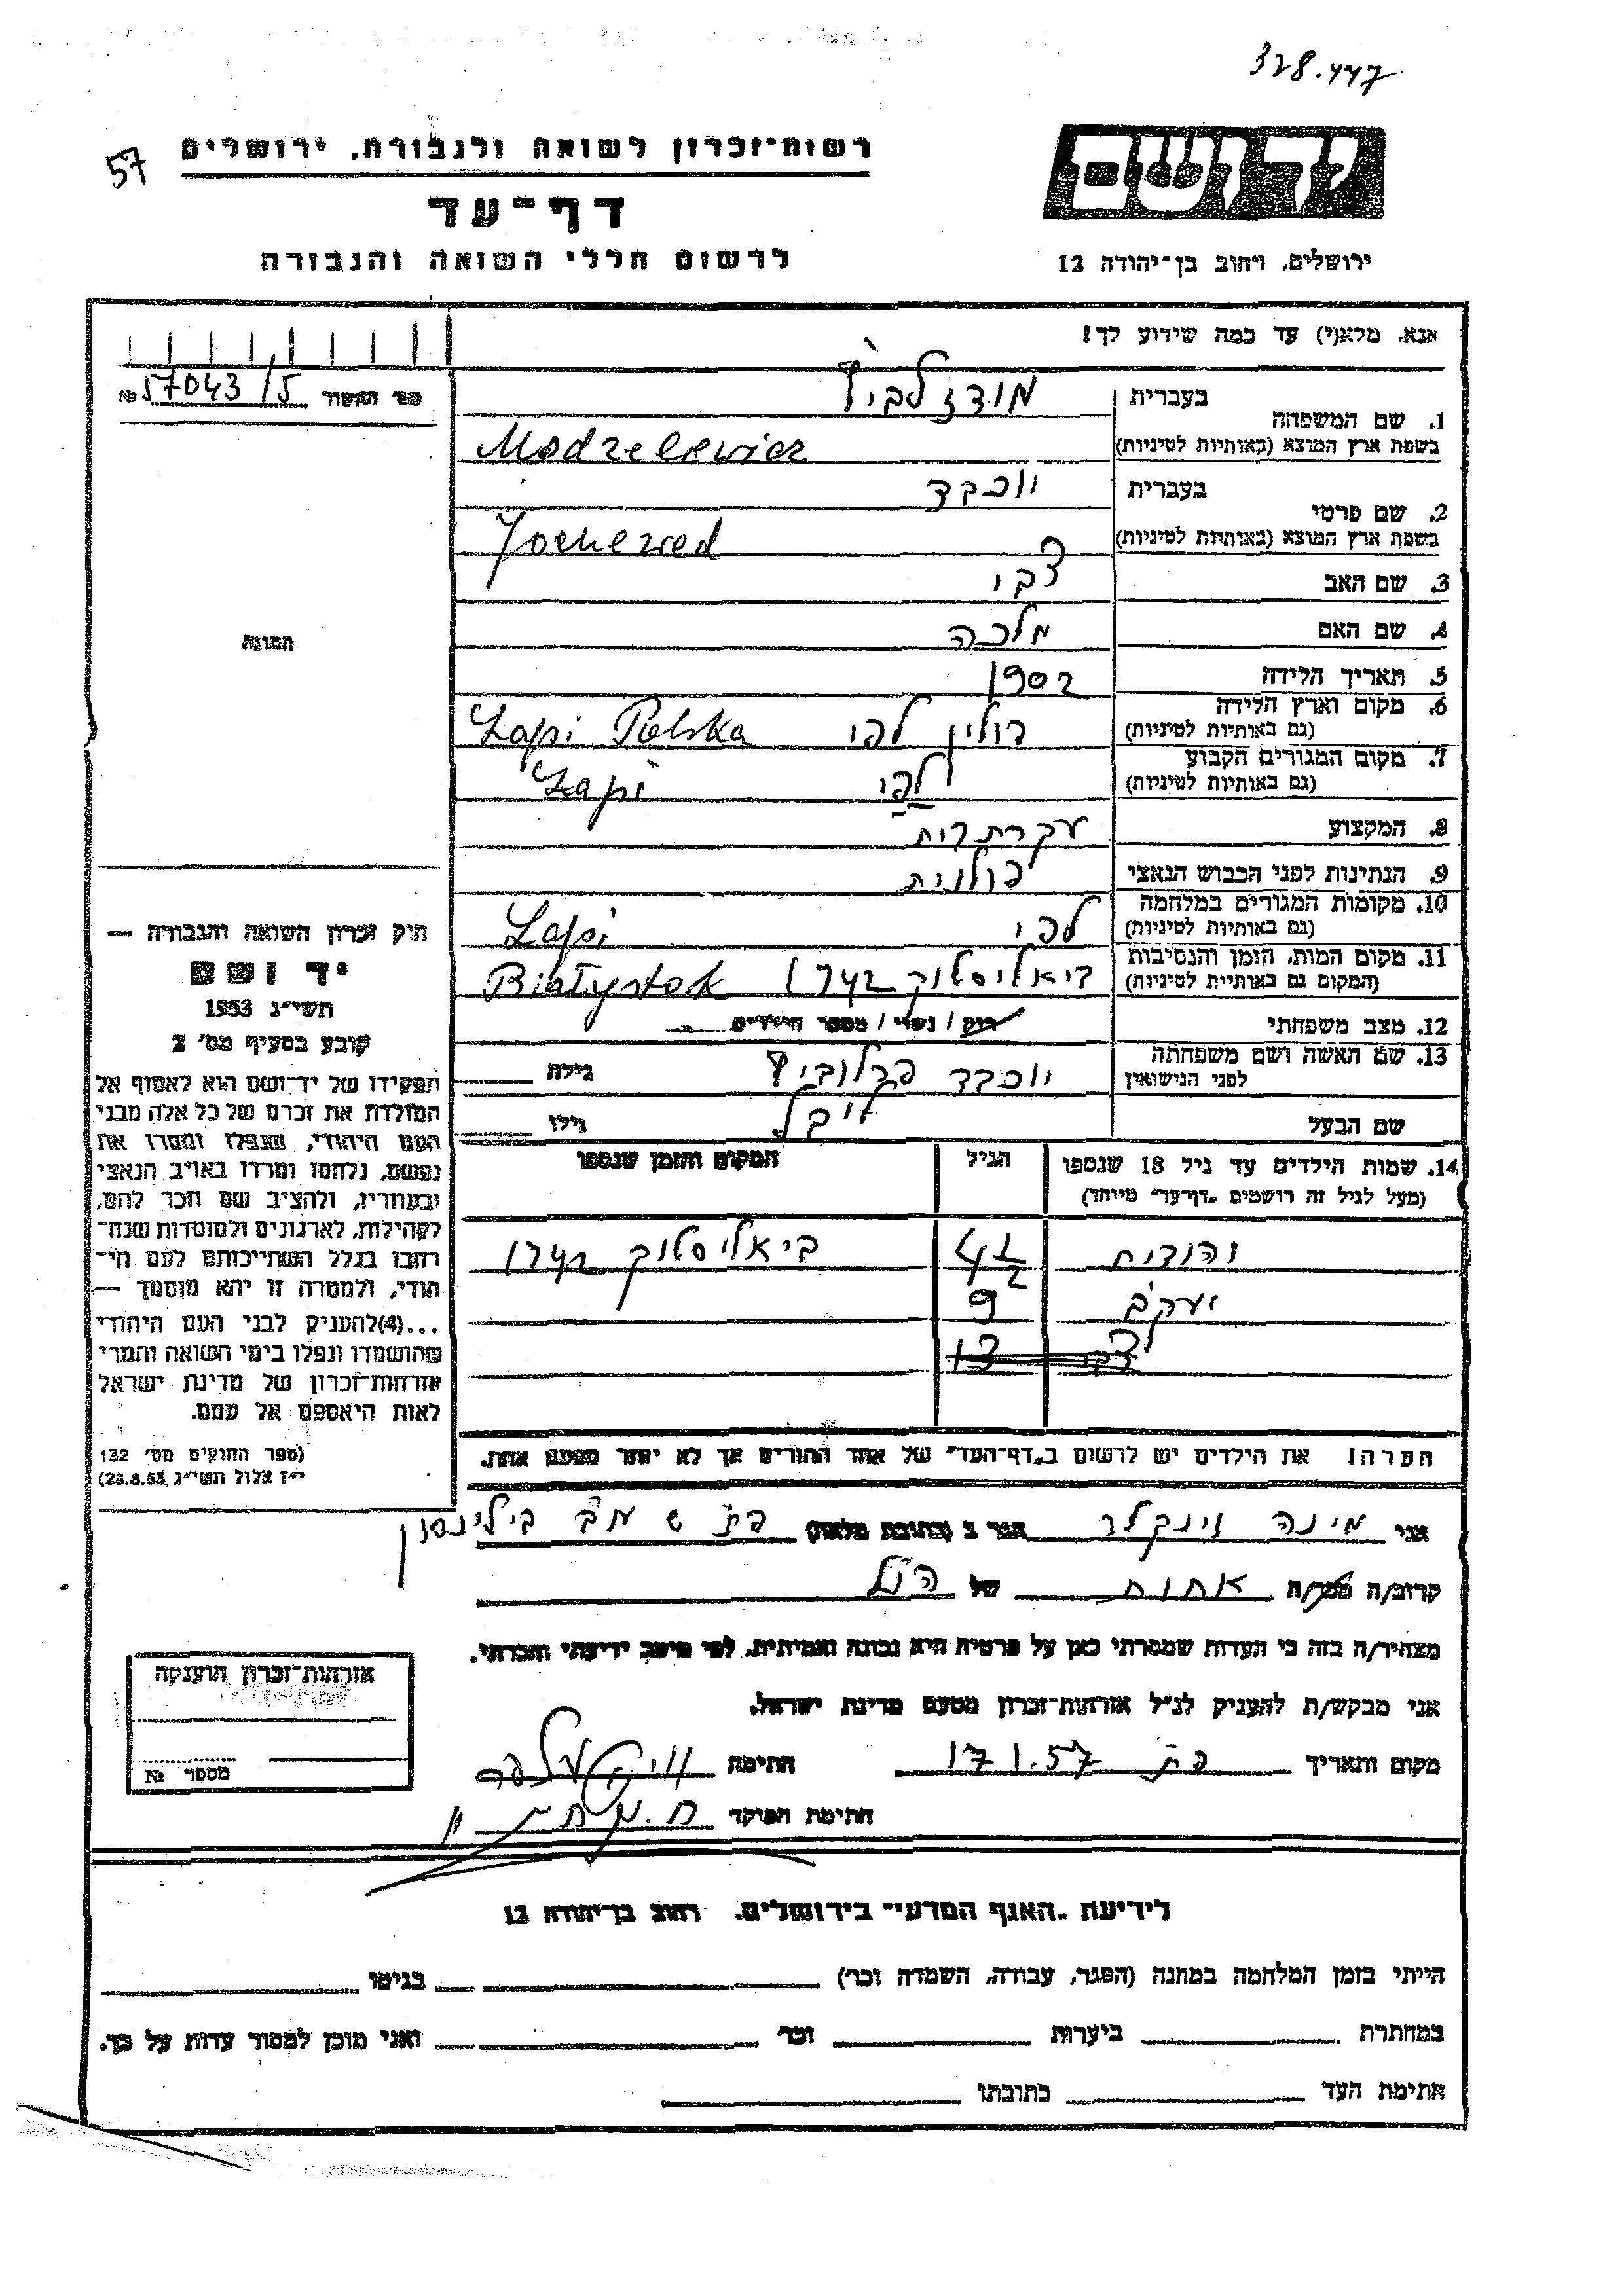 328.447
57
רשות-זכרון לשואה ולגבורה, ירושלים
דף-עד
לרשום חללי השואה והגבורה
יד ושם
ירושלים, רחוב בן-יהודה 12
אנא, מלא(י) עד כמה שידוע לך!
מס' האשור 57043/5 №
תמונה
1. שם המשפחה
בעברית
מודזלביץ
בשפת ארץ המוצא (באותיות לטיניות)
Modzelewicz
2. שם פרטי
בעברית
יוכבד
בשפת ארץ המוצא (באותיות לטיניות)
Jochewed
3. שם האב צבי
4. שם האם מלכה
5. תאריך הלידה 1902
6. מקום וארץ הלידה
(גם באותיות לטיניות) פולין לפי Łapi Polska
7. מקום המגורים הקבוע
(גם באותיות לטיניות) לפי Łapi
8. המקצוע עקרת בית
9. הנתינות לפני הכבוש הנאצי פולנית
10. מקומות המגורים במלחמה
(גם באותיות לטיניות) לפי Łapi
11. מקום המות, הזמן והנסיבות
(המקום גם באותיות לטיניות) ביאליסטוק Białystok
12. מצב משפחתי רוק / נשוי / מספר הילדים
13. שם האשה ושם משפחתה
לפני הנישואין יוכבד גילה
שם הבעל ליבל גילו
14. שמות הילדים עד גיל 18 שנספו הגיל המקום והזמן שנספו
(מעל לגיל זה רושמים "דף-עד" מיוחד)
יהודית 4 1/2 ביאליסטוק
יעקב 9
צבי 13
הערה! את הילדים יש לרשום ב"דף-העד" של אחד ההורים אך לא יותר מפעם אחת.
חוק זכרון השואה והגבורה —
יד ושם
תשי"ג 1953
קובע בסעיף מס' 2
תפקידו של יד-ושם הוא לאסוף אל
המולדת את זכרם של כל אלה מבני
העם היהודי, שנפלו ומסרו את
נפשם, נלחמו ומרדו באויב הנאצי
ובעוזריו, ולהציב שם וזכר להם,
לקהילות, לארגונים ולמוסדות שנח-
רבו בגלל השתייכותם לעם הי-
הודי, ולמטרה זו יהא מוסמך —
...(4) להעניק לבני העם היהודי
שהושמדו ונפלו בימי השואה והמרי
אזרחות-זכרון של מדינת ישראל
לאות היאספם אל עמם.
(ספר החוקים מס' 132
י"ז אלול תשי"ג, 28.8.53)
אני מינה וינקלר הגר ב (כתובת מלאה) פת בילינסון
קרוב/ה מכר/ה אחות של הנ"ל
מצהיר/ה בזה כי העדות שמסרתי כאן על פרטיה היא נכונה ואמיתית, לפי מיטב ידיעתי והכרתי.
אני מבקש/ת להעניק לנ"ל אזרחות-זכרון מטעם מדינת ישראל.
מקום ותאריך פת 17 1.57 חתימה
חתימת הפוקד
אזרחות-זכרון הוענקה
מספר №
לידיעת "האגף המדעי" בירושלים, רחוב בן-יהודה 12
הייתי בזמן המלחמה במחנה (הסגר, עבודה, השמדה וכו') בגיטו
במחתרת ביערות וכו' ואני מוכן למסור עדות על כך.
חתימת העד כתובתו